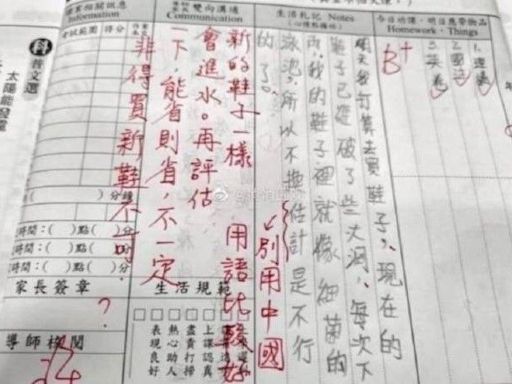 今日功課、明日應帶物品
Homework、Things
2.國
3.英
B+
生活札記 Notes
(心情點播站)
明天我打算去買鞋子，現在的
鞋子已經破了些大洞，每次下
雨，我的鞋子裡就像細菌的
泳池，所以不換估計是不行
的了。
←別用中國
用語比較好
雙向溝通
Communication
新的鞋子一樣
會進水。再評估
一下，能省則省，不一定
非得買新鞋不可
生活規範
上課認真
盡責打掃
熱心助人
表現良好
Information
考試範圍
得分
分鐘
時間：( )點( )分
時間：( )點( )分
時間：( )點( )分
家長簽章
?
導師
閱
科
普文選
太陽能發電